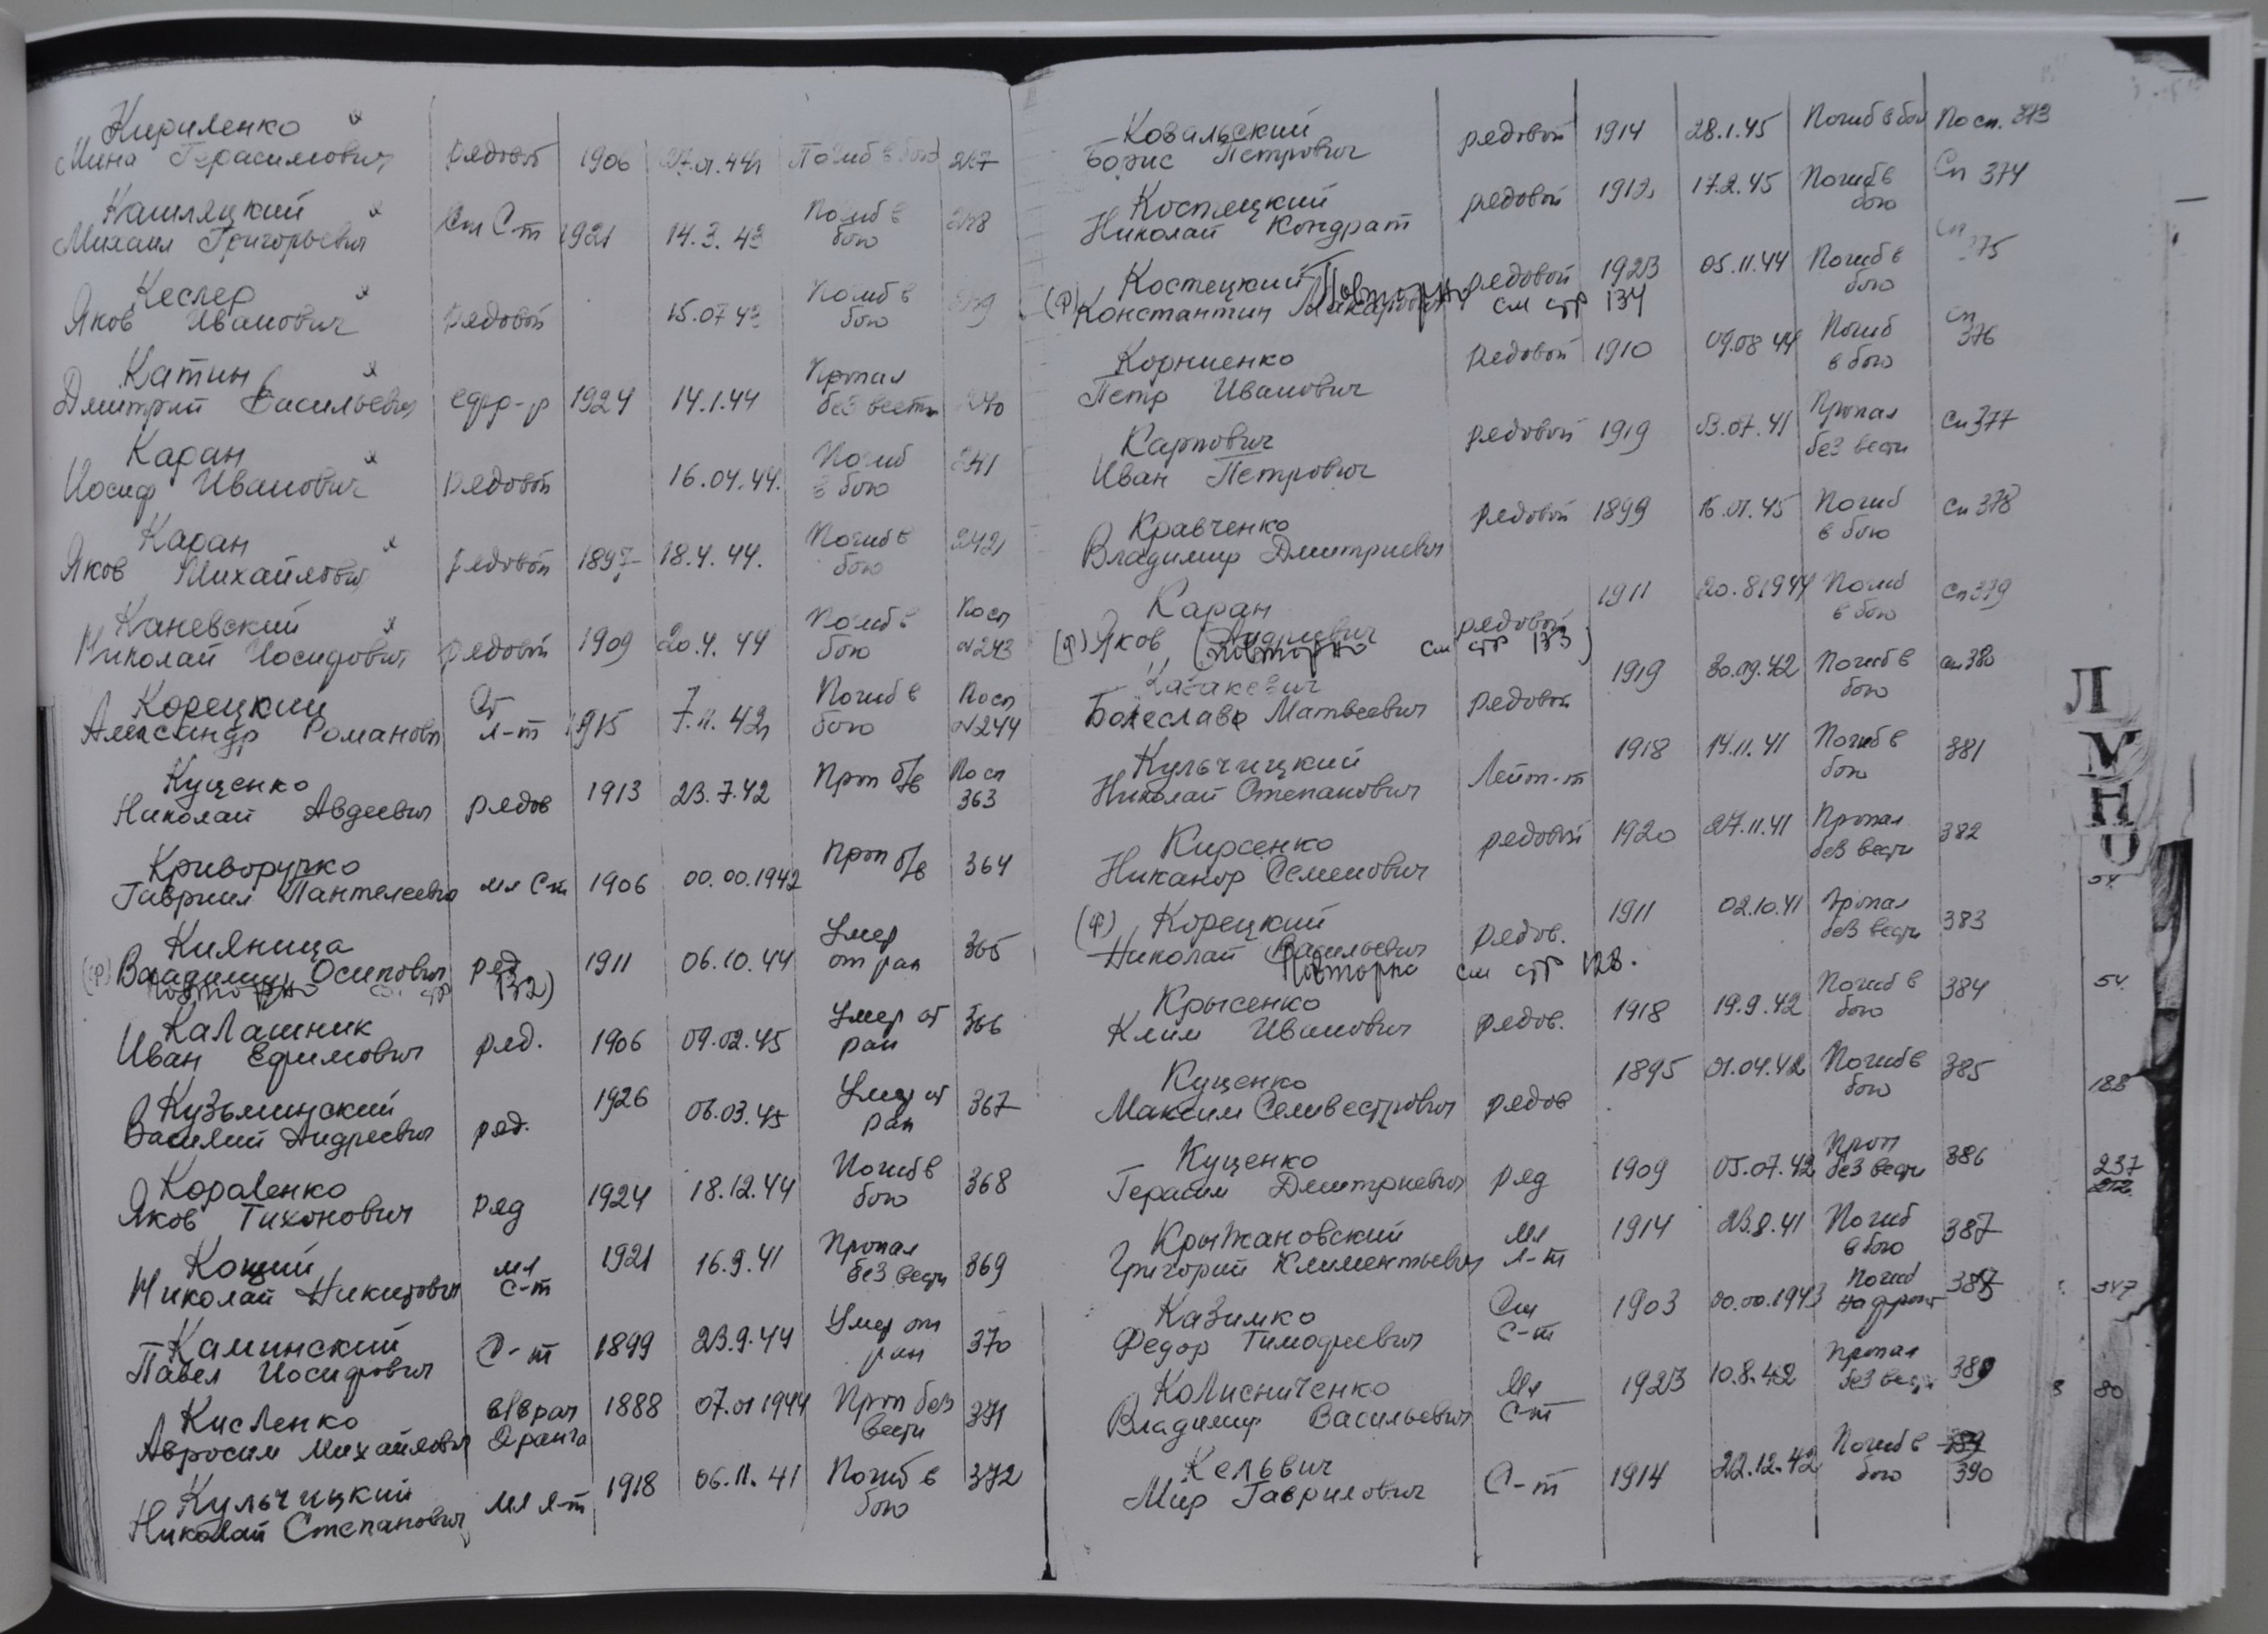 Кириленко
Мина Герасимович рядовой 1906 27.01.44 Погиб в бою 237
Кашляцкий
Михаил Григорьевич Ст С-т 1921 14.3.43 Погиб в бою 238
Кеслер
Яков Иванович рядовой 15.07.43 Погиб в бою
Катин
Дмитрий Васильевич ефр-р 1924 14.1.44 Пропал без вести 240
Каран
Иосиф Иванович рядовой 16.04.44. Погиб в бою 241
Каран
Яков Михайлович рядовой 1897 18.4.44. Погиб в бою 242
Каневский
Николай Иосифович рядовой 1909 20.4.44 Погиб в бою По сп №243
Корецкий
Александр Романович Ст л-т 1915 7.11.42 Погиб в бою По сп №244
Куценко
Николай Авдеевич рядов 1913 23.7.42 Проп б/в По сп 363
Криворучко
Гавриил Пантелеевич мл С-т 1906 00.00.1942 Проп б/в 364
Кияница
(Ф) Владимир Осипович ряд 1911 06.10.44 Умер от ран 365
повторно см. стр 132)
Калашник
Иван Ефимович ряд. 1906 09.02.45 Умер от ран 366
Кузьминский
Василий Андреевич ряд. 1926 06.03.45 Умер от ран 367
Короленко
Яков Тихонович ряд 1924 18.12.44 Погиб в бою 368
Коший
Николай Никитович мл С-т 1921 16.9.41 Пропал без вести 369
Каминский
Павел Иосифович С-т 1899 23.9.44 Умер от ран 370
Кисленко
Авросим Михайлович в/врач 2ранга 1888 07.01.1944 Проп без вести 371
Кульчицкий
Николай Степанович мл л-т 1918 06.11.41 Погиб в бою 372
Ковальский
Борис Петрович рядовой 1914 28.1.45 Погиб в бою По сп. 373
Костецкий
Николай Кондрат рядовой 1912 17.2.45 Погиб в бою Сп 374
Костецкий Повторно рядовой 1923 05.11.44 Погиб в бою Сп 375
(Ф) Константин Макарович см стр 134
Корниенко
Петр Иванович рядовой 1910 09.08.44 Погиб в бою Сп 376
Карпович
Иван Петрович рядовой 1919 03.07.41 Пропал без вести Сп 377
Кравченко
Владимир Дмитриевич рядовой 1899 16.01.45 Погиб в бою Сп 378
Каран
(Ф) Яков Андреевич рядовой 1911 20.8.1944 Погиб в бою Сп 379
(повторно см стр 133)
Казакевич
Болеслав Матвеевич рядовой 1919 30.09.42 Погиб в бою сп 380
Кульчицкий
Николай Степанович Лейт-т 1918 14.11.41 Погиб в бою 381
Кирсенко
Никанор Семенович рядовой 1920 27.11.41 Пропал без вести 382
(Ф) Корецкий
Николай Васильевич рядов. 1911 02.10.41 Пропал без вести 383
Повторно см стр 128.
Крысенко
Клим Иванович рядов. 1918 19.9.42 Погиб в бою 384
Куценко
Максим Селивестрович рядов 1895 01.04.42 Погиб в бою 385
Куценко
Герасим Дмитриевич ряд 1909 05.07.42 Проп без вести 386
Крыжановский
Григорий Климентьевич Мл л-т 1914 23.8.41 Погиб в бою 387
Казимко
Федор Тимофеевич Ст С-т 1903 00.00.1943 Погиб на фронт
Колисниченко
Владимир Васильевич Мл С-т 1923 10.8.42 Пропал без вести 389
Кельвич
Мир Гаврилович С-т 1914 22.12.42 Погиб в бою 389 390
Л
М
Н
О
54
54
188
237
212
347
8 80